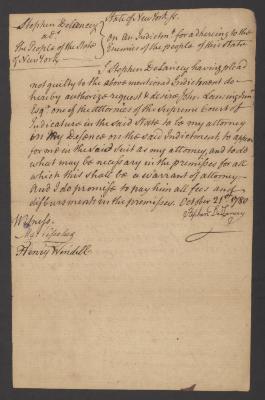 Stephen DeLancey
ads
The People of the State
of New York
State of New York ss.
On an Indictmt for adhering to the
Enemies of the people of this state
I Stephen DeLancey having plead
not guilty to the abovementioned Indictment do
hereby authorize request & desire John Lansing Junr
Esqr one of the attornies of the Supreme Court of
Judicature in the said State to be my attorney
on my Defence on the said Indictment to appear
for me in the said Suit as my attorney, and to do
what may be necessary in the premises for all
which this shall be a warrant of attorney
And I do promise to pay him all fees and
disbursments in the premises. October 21st 1780
Stephen DeLancey
Witness.
Henry Wendell